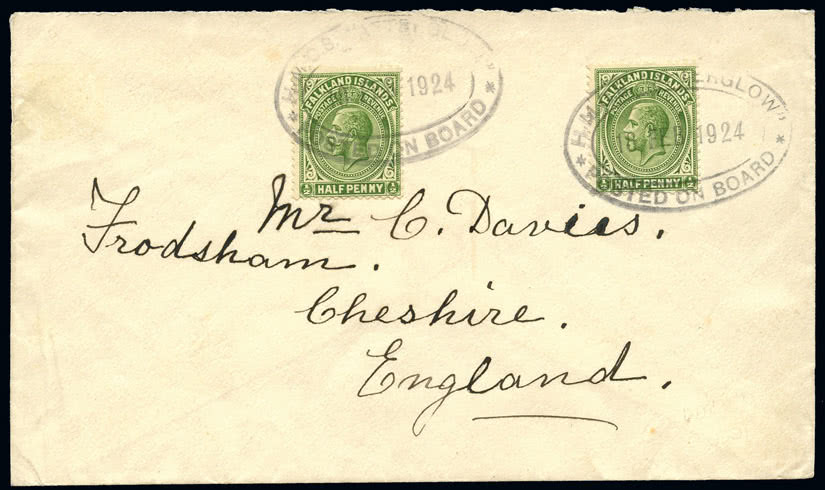 1924
POSTED ON BOARD
FALKLAND ISLANDS
POSTAGE REVENUE
½ HALF PENNY ½
1924
POSTED ON BOARD
FALKLAND ISLANDS
POSTAGE REVENUE
½ HALF PENNY ½
Mr C. Davies.
Frodsham.
Cheshire.
England.